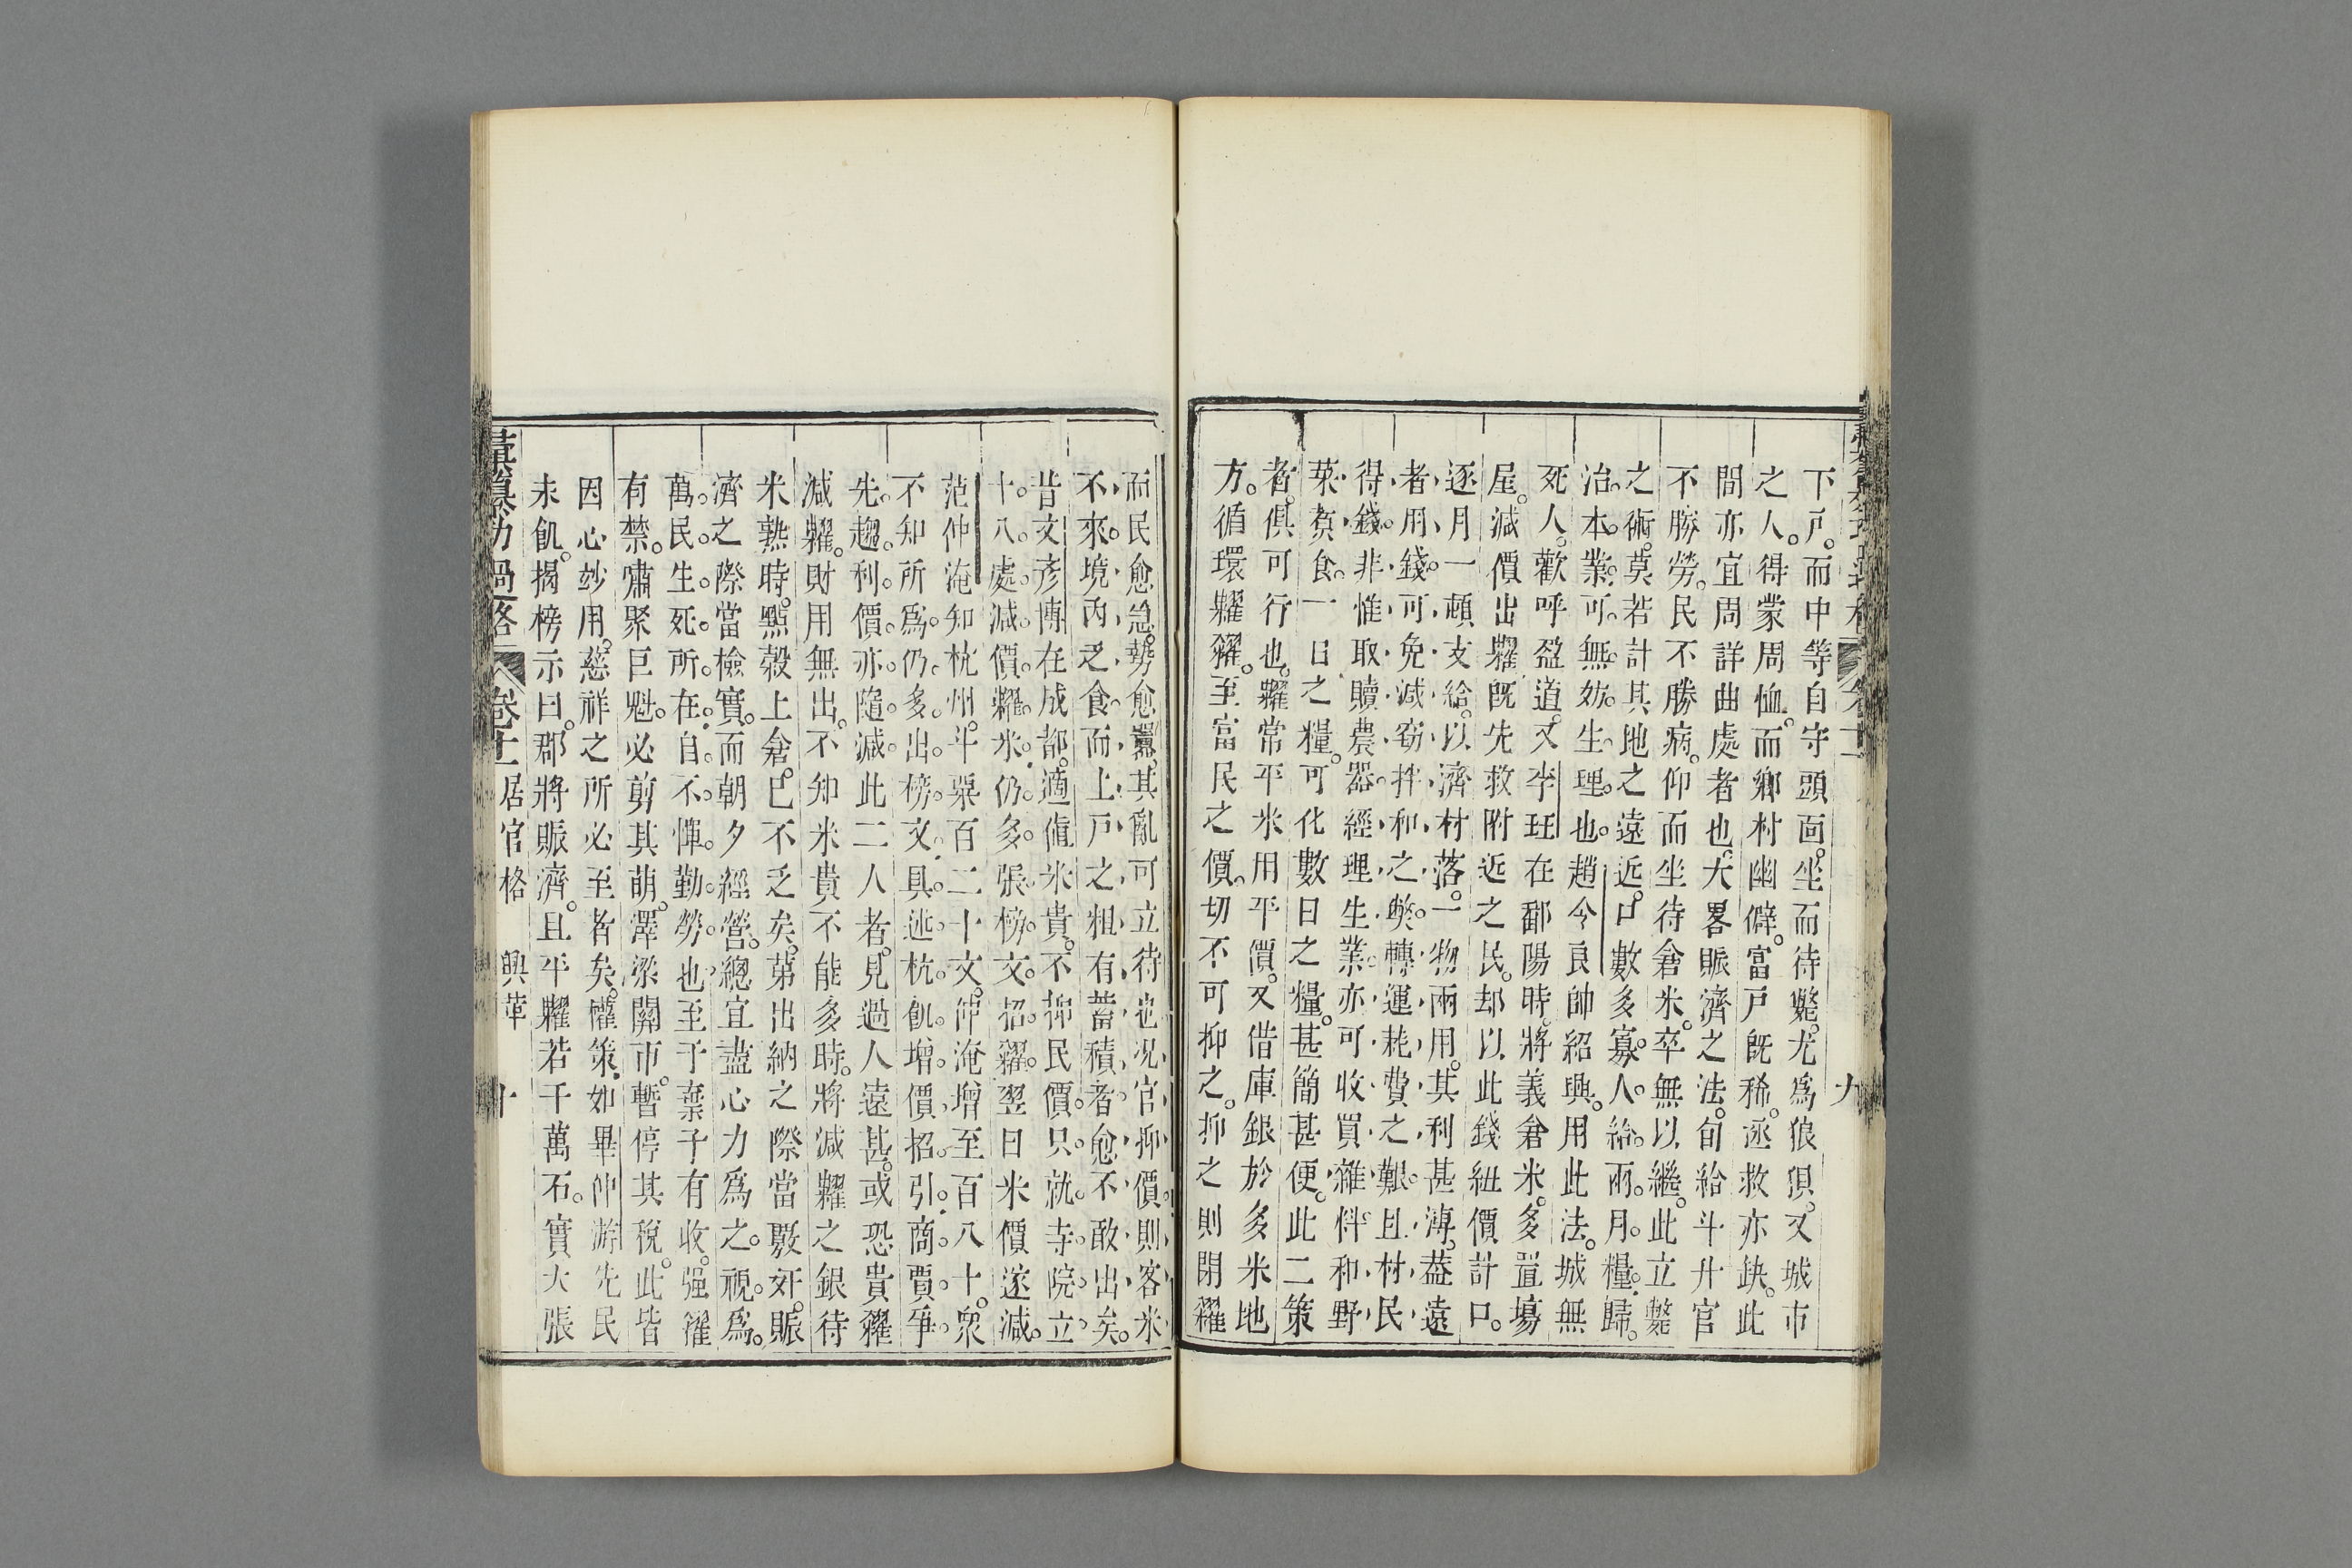 下戶。而中等自守頭面。坐而待斃。尤爲狼狽。又城市
之人。得蒙周恤。而鄉村幽僻。富戶既稀。逐救亦缺。此
間亦宜周詳曲處者也。大畧賑濟之法。旬給斗升官
不勝勞。民不勝病。仰而坐待倉米。卒無以繼。此立斃
之術。莫若計其地之遠近。口數多寡。人給兩月糧。歸
治本業。可無妨生理也。趙令良帥紹興。用此法。城無
死人。歡呼盈道。又李玨在鄱陽時。將義倉米。多置塲
屋。減價出糶既先救附近之民。却以此錢紐價計口。
逐月一頓支給。以濟村落。一物兩用。其利甚溥。葢遠
者用錢。可免減竊拌和之弊。轉運耗費之艱。且村民
得錢。非惟取贖農器。經理生業。亦可收買雜料和野
菜煑食。一日之糧。可化數日之糧。甚簡甚便。此二策
者。俱可行也。糶常平米用平價。又借庫銀於多米地
方。循環糶糴。至富民之價。切不可抑之。抑之則閉糴
九
而民愈急。勢愈囂。其亂可立待也况官抑價。則客米
不來。境內乏食。而上戶之粗有蓄積者。愈不敢出矣。
昔文彥博在成都。適値米貴。不抑民價。只就寺院立
十八處減價糶米。仍多張榜文。招糴。翌日米價遂減。
范仲淹知杭州。斗粟百二十文。仲淹增至百八十。衆
不知所爲。仍多出榜文。具述杭飢。增價招引商賈爭
先趨利。價亦隨減此二人者。見過人遠甚。或恐貴糴
減糶。財用無出。不知米貴不能多時。將減糶之銀待
米熟時。點穀上倉。已不乏矣。第出納之際當覈奸。賑
濟之際當檢實。而朝夕經營。總宜盡心力爲之。視爲
萬民生死所在。自不憚勤勞也至于葉子有收。强糴
有禁。嘯聚巨魁。必剪其萌。澤梁關市。暫停其稅。此皆
因心玅用。慈祥之所必至者矣。權策如畢仲游先民
未飢。揭榜示曰。郡將賑濟。且平糶若干萬石。實大張
彙纂功過格 卷十一 居官格 興革 十